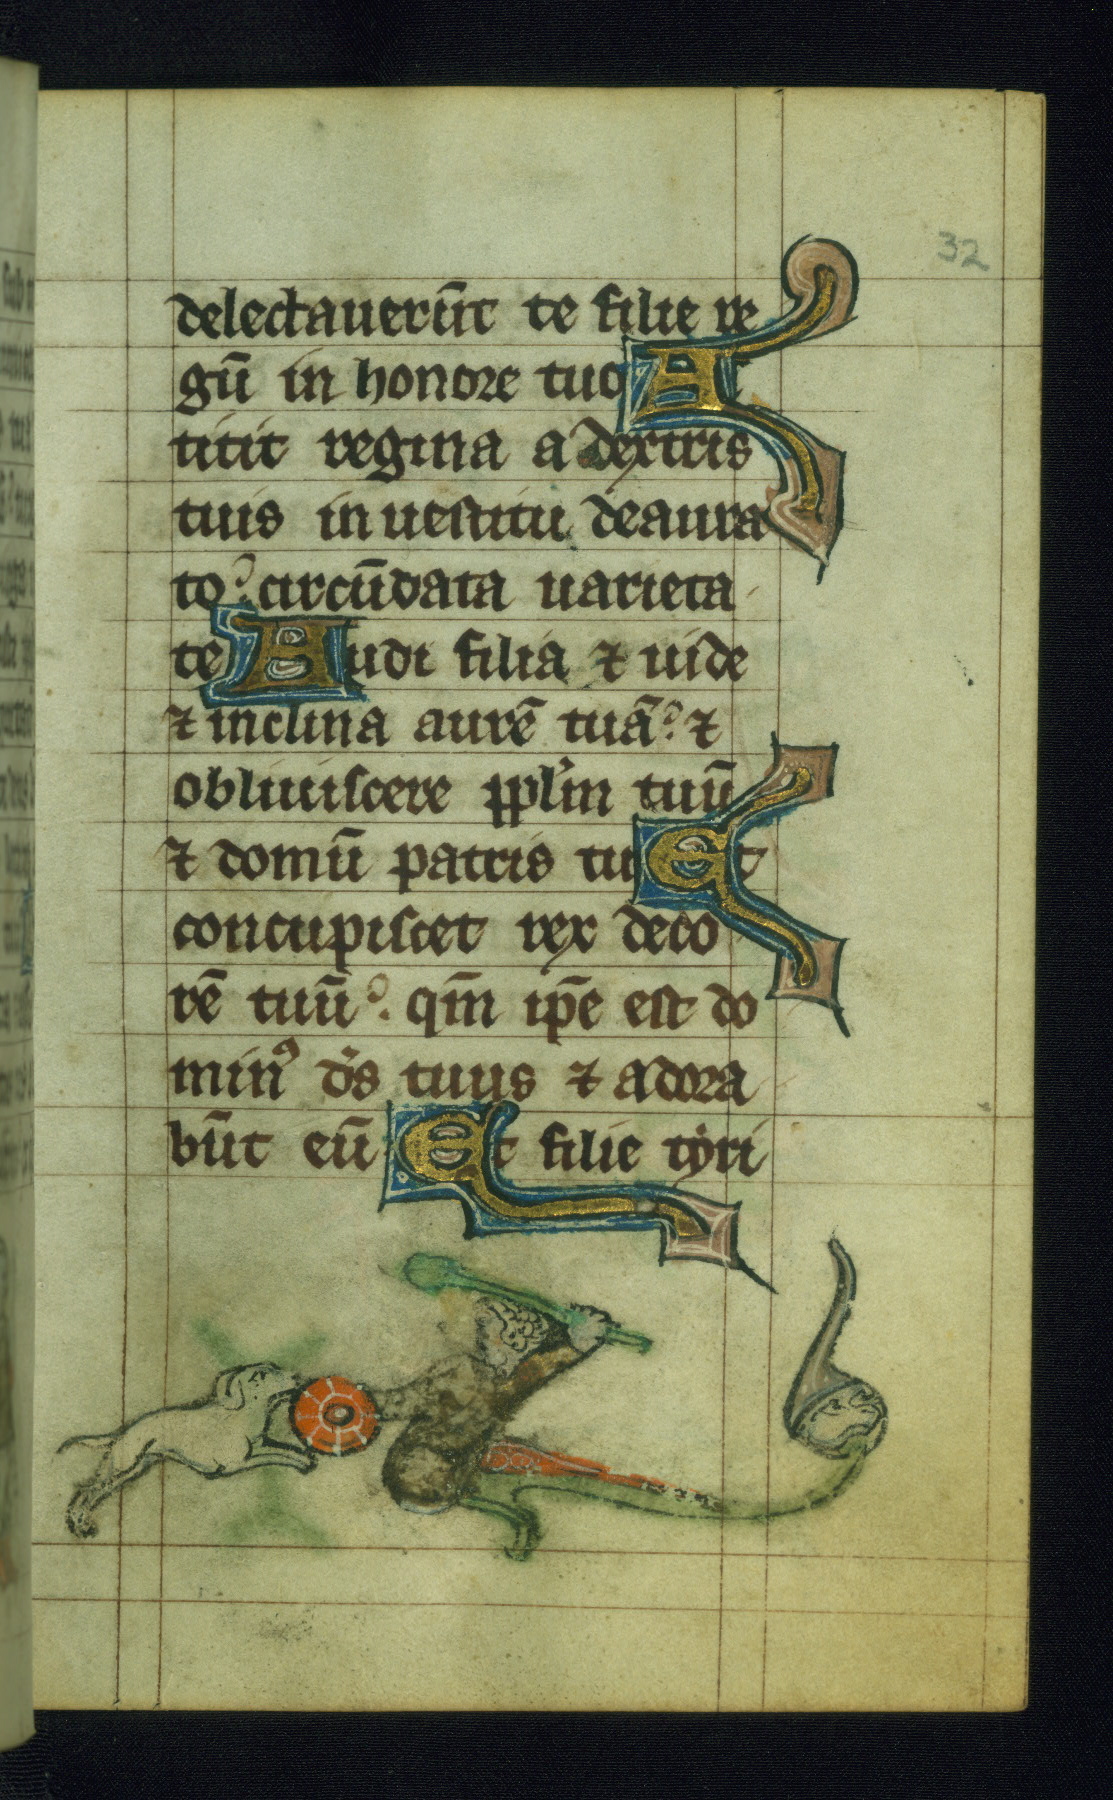 32
delectauerūt te filie re
gū in honore tuo A
titit regina a dextris
tuis in uestitu deaura
to? circūdata uarieta
te Audi filia ⁊ uide
⁊ inclina aurē tuā? ⁊
obliuiscere ppl'm tuū
⁊ domū patris tu Et
concupiscet rex deco
rē tuū? qm̄ ip̄e est do
minꝰ d's tuus ⁊ adora
būt eū Et filie tẏri